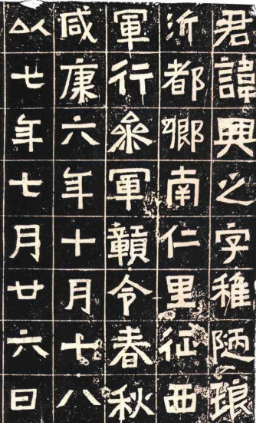 君諱興之字稚陋琅
沂都鄉南仁里征西
軍行參軍贛令春秋
咸康六年十月十八
以七年七月廿六日